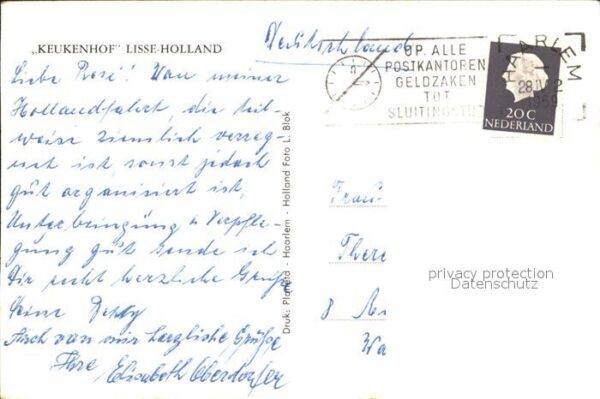 „KEUKENHOF" LISSE-HOLLAND
Deutschland
Liebe Rosé! Von meiner
Hollandfahrt, die teil-
weise ziemlich verreg-
net ist, sonst jedoch
gut organisiert ist,
Unterbringung u. Verpfle-
gung gut sende ich
Dir recht herzliche Grüße
Deine
Auch von mir herzliche Grüße
Ihre Elisabeth Oberdorfer
Druk: - Haarlem - Holland Foto L. Blok
OP ALLE
POSTKANTOREN
GELDZAKEN
TOT
SLUITINGSTIJD
HAARLEM
28.IV
1959
20 C
NEDERLAND
Frau
There
8
Wa
privacy protection
Datenschutz